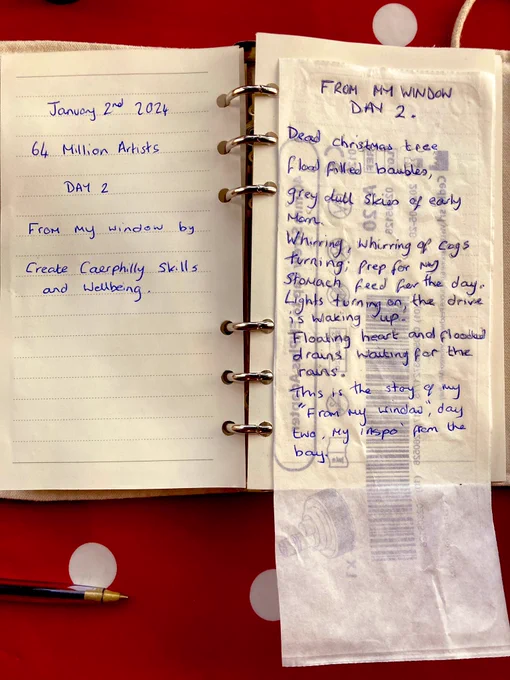 January 2nd 2024
64 Million Artists
DAY 2
From my window by
Create Caerphilly Skills
and Wellbeing.
FROM MY WINDOW
DAY 2.
Dead christmas tree
flood filled baubles,
grey dull skies of early
Morn.
Whirring, whirring of cogs
turning, prep for my
stomach feed for the day.
Lights turning on, the drive
is waking up.
Floating heart and flooded
drains waiting for the
rains.
This is the stoy of my
"From My window", day
two, My inspo' from the
bay.